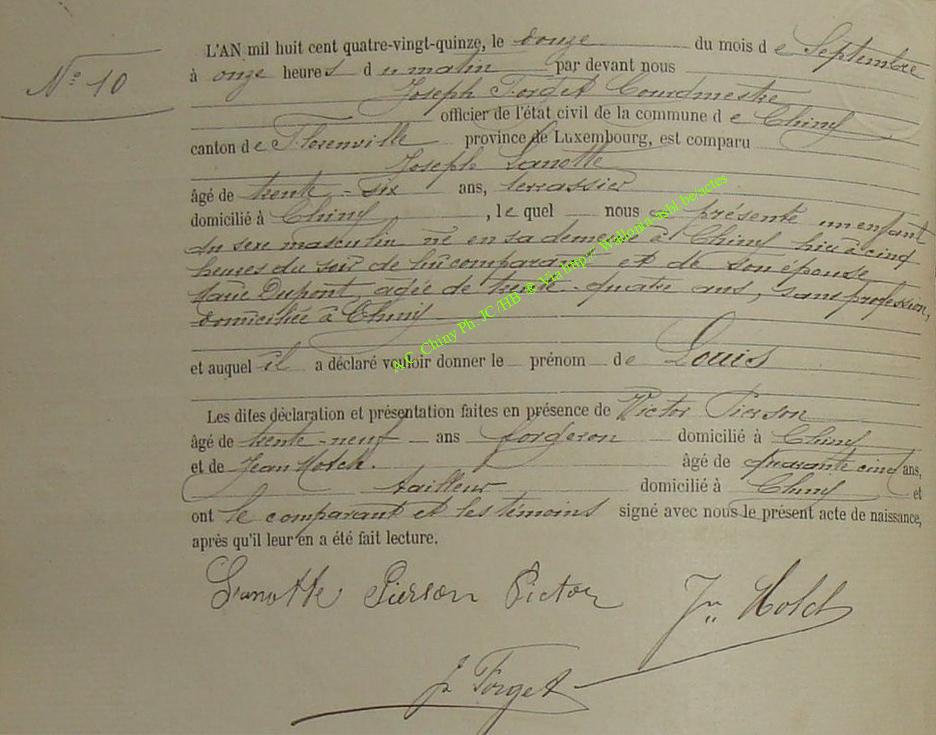 N° 10
L'AN mil huit cent quatre-vingt-quinze, le douze du mois de Septembre
à onze heures du matin par devant nous
Joseph Forget Bourgmestre
officier de l'état civil de la commune de Chiny
canton de Florenville province de Luxembourg, est comparu
Joseph Lanotte
âgé de trente-six ans, terrassier
domicilié à Chiny, lequel nous a présenté un enfant
du sexe masculin né en sa demeure à Chiny hier à cinq
heures du soir de lui comparant et de son épouse
Marie Dupont, agée de trente-quatre ans, sans profession,
domiciliée à Chiny
et auquel il a déclaré vouloir donner le prénom de Louis
Les dites déclaration et présentation faites en présence de Victor Pierson
âgé de trente-neuf ans forgeron domicilié à Chiny
et de Jean âgé de quarante cinq ans,
tailleur domicilié à Chiny et
ont le comparant et les témoins signé avec nous le présent acte de naissance,
après qu'il leur en a été fait lecture.
Lanotte Pierson Victor Jn
J. Forget
A.C. Chiny Ph. JC /HB & Via http:// Wallonia asbl be/actes